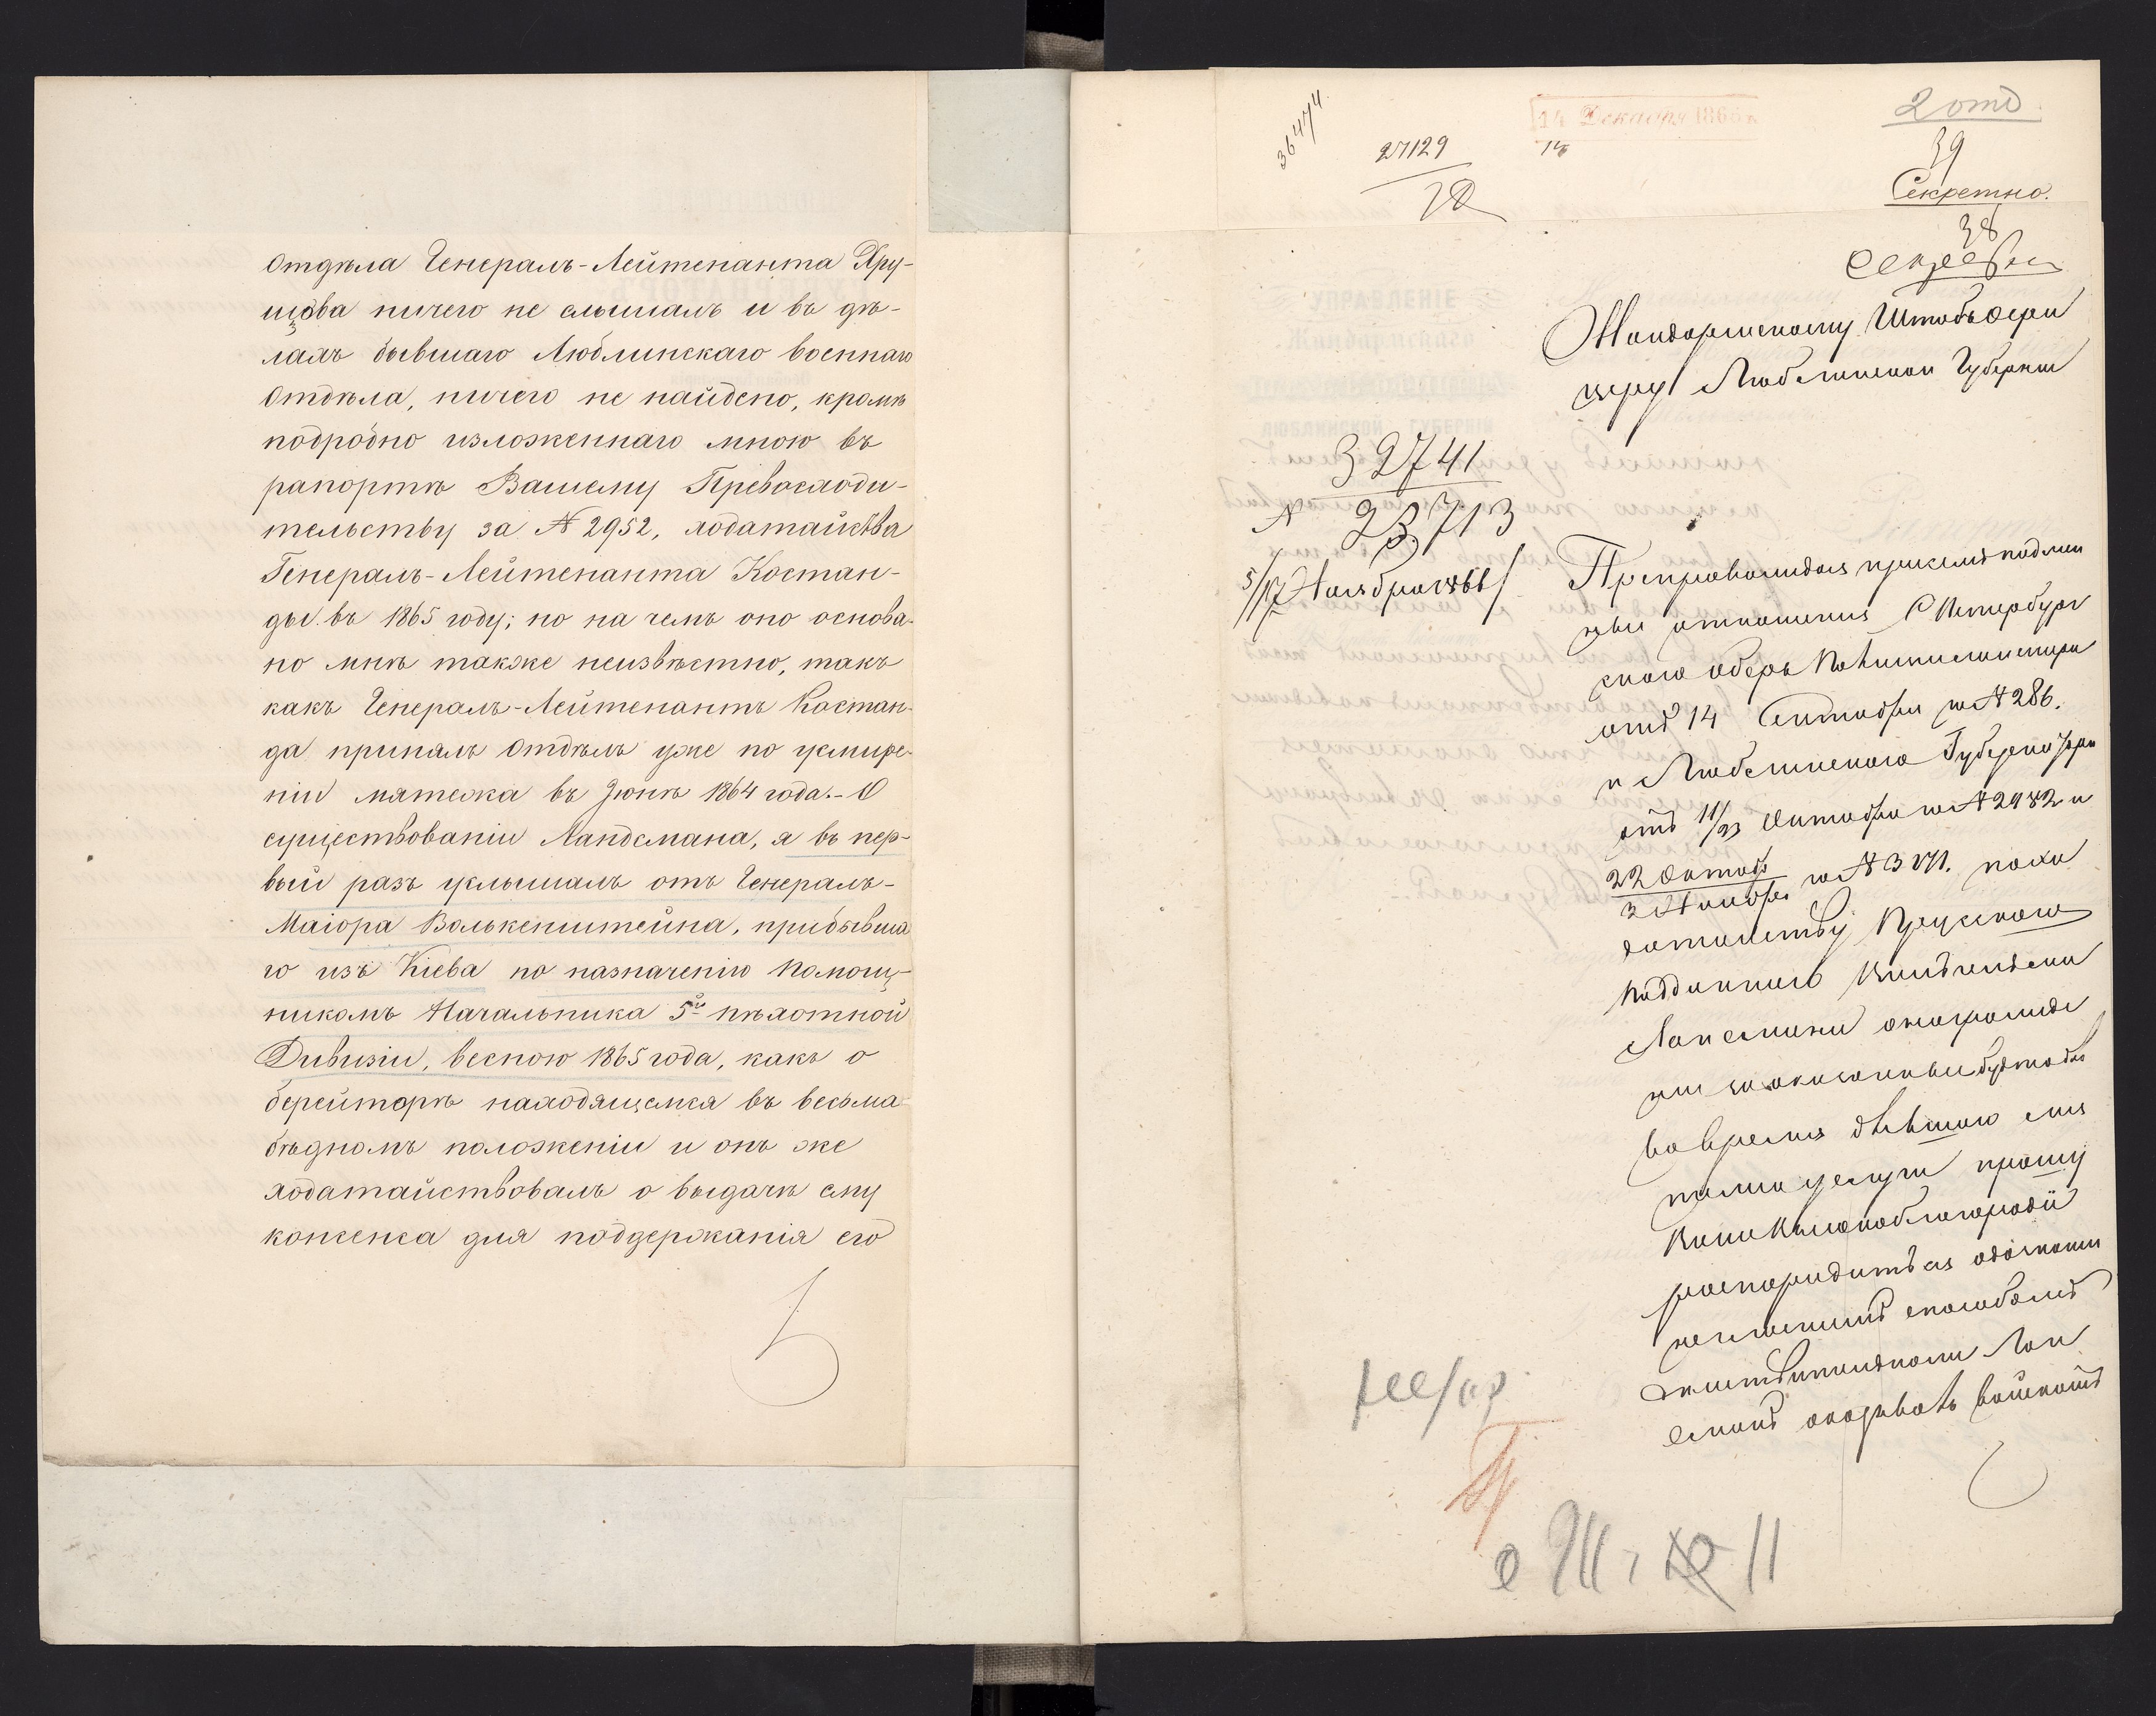 отдѣла Генералъ-Лейтенанта Хру-
щова ничего не слышалъ и въ дѣ-
лахъ бывшаго Люблинскаго военнаго
Отдѣла, ничего не найдено, кромѣ
подробно изложеннаго мною въ
рапортѣ Вашему Превосходи-
тельству за № 2952, ходатайства
Генералъ-Лейтенанта Костан-
ды въ 1865 году; но на чемъ оно основа-
но мнѣ также неизвѣстно, такъ
какъ Генералъ-Лейтенантъ Костан-
да принялъ Отдѣлъ уже по усмире-
ніи мятежа въ Іюнѣ 1864 года.- О
существованіи Ландсмана, я въ пер-
вый разъ услышалъ отъ Генералъ-
Маіора Валькенштейна, прибывша
го изъ Кіева по назначенію Помощ-
никомъ Начальника 5й пѣхотной
Дивизіи, весною 1865 года, какъ о
берейторѣ находящемся въ весьма
бѣдномъ положеніи и онъ же
ходатайствовалъ о выдачѣ ему
консенса для поддержанія его
36474
27129
14 Декабря 186
2 отд.
39
Секретно.
38
Секретно
УПРАВЛЕНІЕ
Жандармскаго
ЛЮБЛИНСКОЙ ГУБЕРНІИ
Жандармскому Штабъ Офи
церу Люблинской Губерніи
32741
№ 23713
5/17 Ноября 1866
Препровождая при семъ подлин
ныя отношенія С Петербург
скаго Оберъ Полиціймейстера
отъ 14 Сентября за № 286.
и Люблинскаго Губернатора
отъ 11/23 Октября за № 2982 и
22 Октября
3 Ноября за № 3171. по хо
датайству Прусскаго
подданнаго
Лансмана о награжде
ніи за оказанныя будто бы
во время бывшаго мя
тежа услуги прошу
Ваше Высокоблагородіе
распорядиться дознать
негласнымъ способомъ
дѣйствительно ли Лан
сманъ оказывалъ войскамъ
II